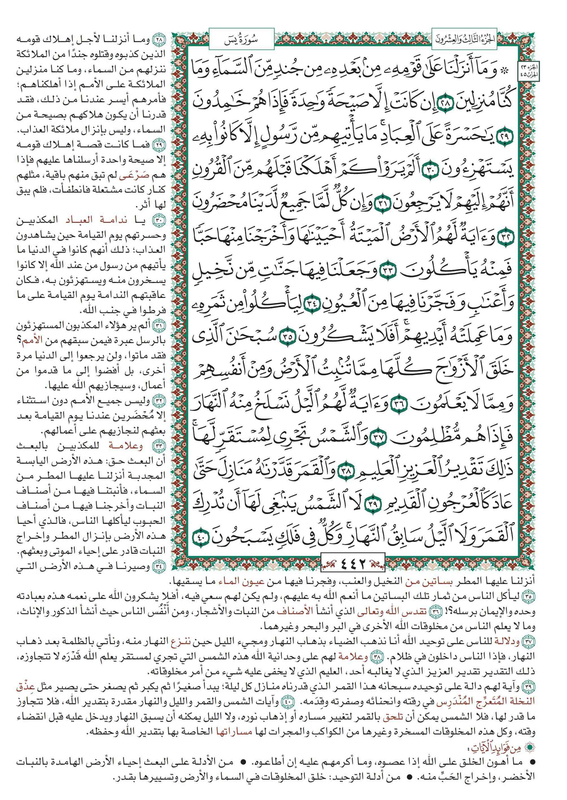 الجزء الثالث والعشرون
سورة يس
الجزء ٢٣
الحزب ٤٥
۞ وَمَآ أَنزَلْنَا عَلَىٰ قَوْمِهِۦ مِنۢ بَعْدِهِۦ مِن جُندٍ مِّنَ ٱلسَّمَآءِ وَمَا
كُنَّا مُنزِلِينَ ٢٨ إِن كَانَتْ إِلَّا صَيْحَةً وَٰحِدَةً فَإِذَا هُمْ خَٰمِدُونَ
٢٩ يَٰحَسْرَةً عَلَى ٱلْعِبَادِ مَا يَأْتِيهِم مِّن رَّسُولٍ إِلَّا كَانُوا۟ بِهِۦ
يَسْتَهْزِءُونَ ٣٠ أَلَمْ يَرَوْا۟ كَمْ أَهْلَكْنَا قَبْلَهُم مِّنَ ٱلْقُرُونِ
أَنَّهُمْ إِلَيْهِمْ لَا يَرْجِعُونَ ٣١ وَإِن كُلٌّ لَّمَّا جَمِيعٌ لَّدَيْنَا مُحْضَرُونَ
٣٢ وَءَايَةٌ لَّهُمُ ٱلْأَرْضُ ٱلْمَيْتَةُ أَحْيَيْنَٰهَا وَأَخْرَجْنَا مِنْهَا حَبًّا
فَمِنْهُ يَأْكُلُونَ ٣٣ وَجَعَلْنَا فِيهَا جَنَّٰتٍ مِّن نَّخِيلٍ
وَأَعْنَٰبٍ وَفَجَّرْنَا فِيهَا مِنَ ٱلْعُيُونِ ٣٤ لِيَأْكُلُوا۟ مِن ثَمَرِهِۦ
وَمَا عَمِلَتْهُ أَيْدِيهِمْ أَفَلَا يَشْكُرُونَ ٣٥ سُبْحَٰنَ ٱلَّذِى
خَلَقَ ٱلْأَزْوَٰجَ كُلَّهَا مِمَّا تُنۢبِتُ ٱلْأَرْضُ وَمِنْ أَنفُسِهِمْ
وَمِمَّا لَا يَعْلَمُونَ ٣٦ وَءَايَةٌ لَّهُمُ ٱلَّيْلُ نَسْلَخُ مِنْهُ ٱلنَّهَارَ
فَإِذَا هُم مُّظْلِمُونَ ٣٧ وَٱلشَّمْسُ تَجْرِى لِمُسْتَقَرٍّ لَّهَا
ذَٰلِكَ تَقْدِيرُ ٱلْعَزِيزِ ٱلْعَلِيمِ ٣٨ وَٱلْقَمَرَ قَدَّرْنَٰهُ مَنَازِلَ حَتَّىٰ
عَادَ كَٱلْعُرْجُونِ ٱلْقَدِيمِ ٣٩ لَا ٱلشَّمْسُ يَنۢبَغِى لَهَآ أَن تُدْرِكَ
ٱلْقَمَرَ وَلَا ٱلَّيْلُ سَابِقُ ٱلنَّهَارِ وَكُلٌّ فِى فَلَكٍ يَسْبَحُونَ ٤٠
٤٤٢
٢٨ وما أنزلنا لأجل إهلاك قومه
الذين كذبوه وقتلوه جندًا من الملائكة
ننزلهم من السماء، وما كنا منزلين
الملائكة على الأمم إذا أهلكناهم؛
فأمرهم أيسر عندنا من ذلك، فقد
قدرنا أن يكون هلاكهم بصيحة من
السماء، وليس بإنزال ملائكة العذاب.
٢٩ فما كانت قصة إهلاك قومه
إلا صيحة واحدة أرسلناها عليهم فإذا
هم صَرْعَى لم تبق منهم باقية، مثلهم
كنار كانت مشتعلة فانطفأت، فلم يبق
لها أثر.
٣٠ يا ندامة العباد المكذبين
وحسرتهم يوم القيامة حين يشاهدون
العذاب؛ ذلك أنهم كانوا في الدنيا ما
يأتيهم من رسول من عند الله إلا كانوا
يسخرون منه ويستهزئون به، فكان
عاقبتهم الندامة يوم القيامة على ما
فرطوا في جنب الله.
٣١ ألم ير هؤلاء المكذبون المستهزئون
بالرسل عبرة فيمن سبقهم من الأمم؟
فقد ماتوا، ولن يرجعوا إلى الدنيا مرة
أخرى، بل أفضوا إلى ما قدموا من
أعمال، وسيجازيهم الله عليها.
٣٢ وليس جميع الأمم دون استثناء
إلا مُحْضَرين عندنا يوم القيامة بعد
بعثهم لنجازيهم على أعمالهم.
٣٣ وعلامة للمكذبين بالبعث
أن البعث حق: هذه الأرض اليابسة
المجدبة أنزلنا عليها المطر من
السماء، فأنبتنا فيها من أصناف
النبات وأخرجنا فيها من أصناف
الحبوب ليأكلها الناس، فالذي أحيا
هذه الأرض بإنزال المطر وإخراج
النبات قادر على إحياء الموتى وبعثهم.
٣٤ وصيرنا في هذه الأرض التي
أنزلنا عليها المطر بساتين من النخيل والعنب، وفجرنا فيها من عيون الماء ما يسقيها.
٣٥ ليأكل الناس من ثمار تلك البساتين ما أنعم الله به عليهم، ولم يكن لهم سعي فيه، أفلا يشكرون الله على نعمه هذه بعبادته
وحده والإيمان برسله؟! ٣٦ تقدس الله وتعالى الذي أنشأ الأصناف من النبات والأشجار، ومن أَنْفُس الناس حيث أنشأ الذكور والإناث،
وما لا يعلم الناس من مخلوقات الله الأخرى في البر والبحر وغيرهما.
٣٧ ودلالة للناس على توحيد الله أنا نذهب الضياء بذهاب النهار ومجيء الليل حين ننزع النهار منه، ونأتي بالظلمة بعد ذهاب
النهار، فإذا الناس داخلون في ظلام. ٣٨ وعلامة لهم على وحدانية الله هذه الشمس التي تجري لمستقر يعلم الله قَدْرَه لا تتجاوزه،
ذلك التقدير تقدير العزيز الذي لا يغالبه أحد، العليم الذي لا يخفى عليه شيء من أمر مخلوقاته.
٣٩ وآية لهم دالة على توحيده سبحانه هذا القمر الذي قدرناه منازل كل ليلة؛ يبدأ صغيرًا ثم يكبر ثم يصغر حتى يصير مثل عِذْق
النخلة المُتَعرِّج المُنْدَرِس في رقته وانحنائه وصفرته وقِدَمه. ٤٠ وآيات الشمس والقمر والليل والنهار مقدرة بتقدير الله، فلا تتجاوز
ما قدر لها، فلا الشمس يمكن أن تلحق بالقمر لتغيير مساره أو إذهاب نوره، ولا الليل يمكنه أن يسبق النهار ويدخل عليه قبل انقضاء
وقته، وكل هذه المخلوقات المسخرة وغيرها من الكواكب والمجرات لها مساراتها الخاصة بها بتقدير الله وحفظه.
من فوائد الآيات
• ما أهون الخلق على الله إذا عصوه، وما أكرمهم عليه إن أطاعوه. • من الأدلة على البعث إحياء الأرض الهامدة بالنبات
الأخضر، وإخراج الحَبِّ منه. • من أدلة التوحيد: خلق المخلوقات في السماء والأرض وتسييرها بقدر.